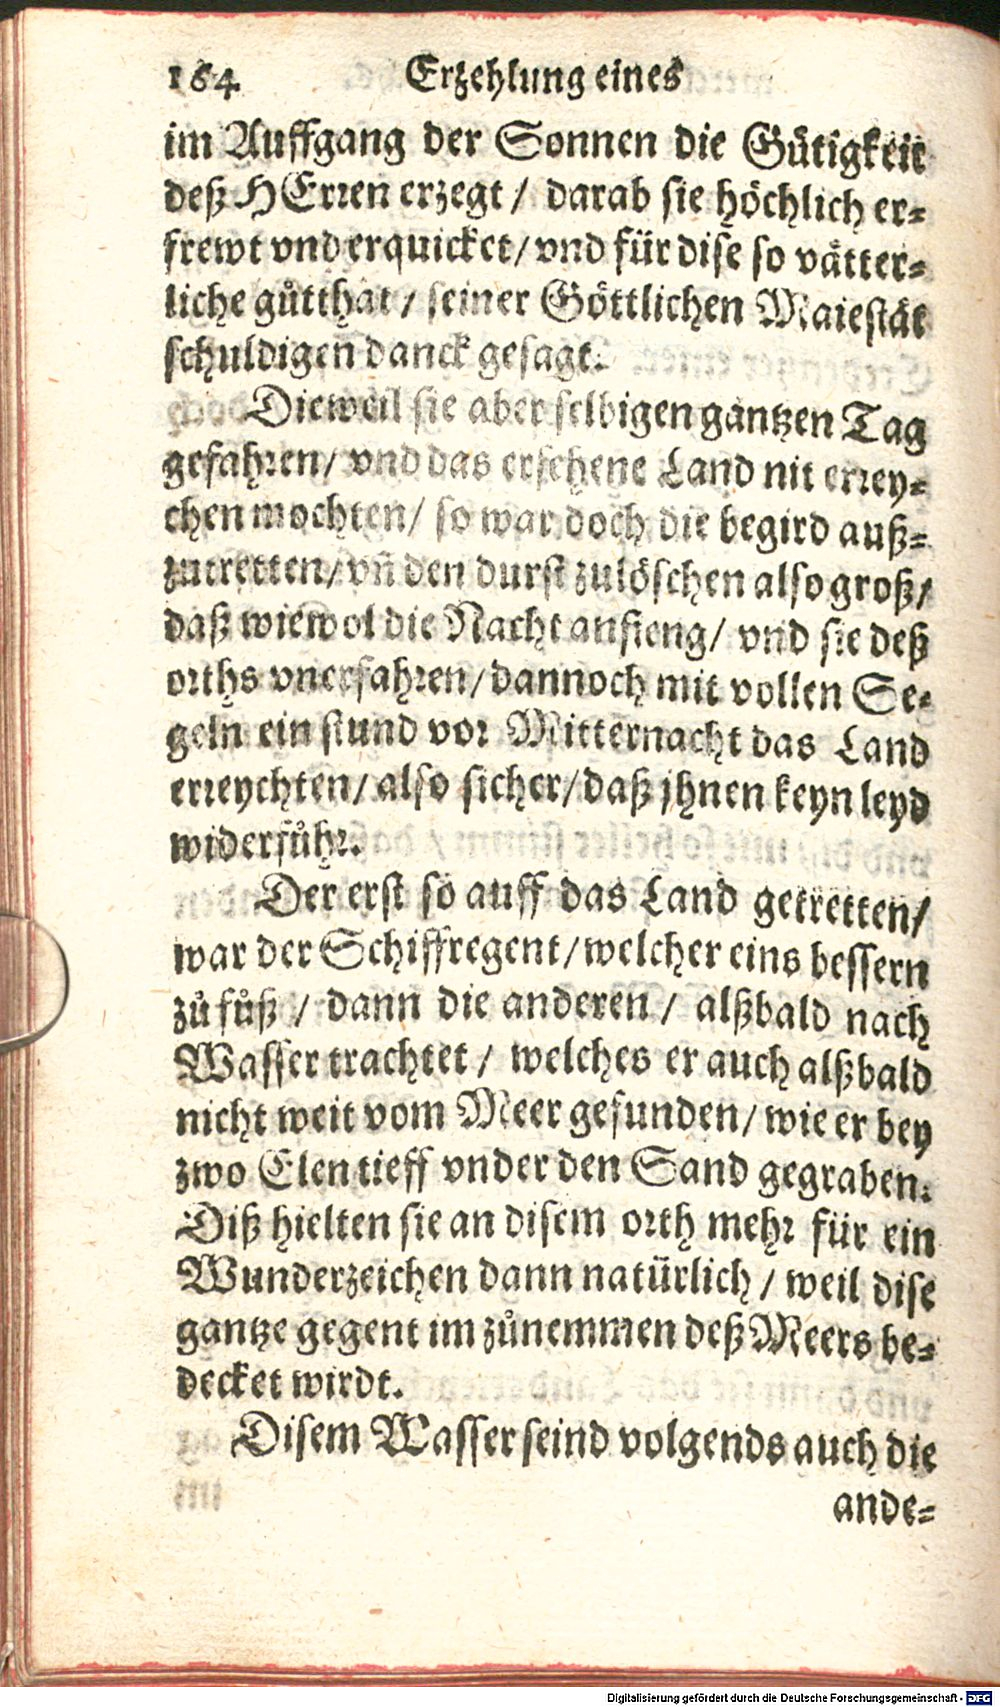 164. Erzehlung eines
im Auffgang der Sonnen die Gütigkeit
deß HErren erzegt / darab sie höchlich er-
frewt vnd erquicket / vnd für dise so vätter-
liche gůtthat / seiner Göttlichen Maiestät
schuldigen danck gesagt.
Dieweil sie aber selbigen gantzen Tag
gefahren / vnd das ersehene Land nit errey-
chen mochten / so war doch die begird auß-
zutretten / vñ den durst zulöschen also groß /
daß wiewol die Nacht anfieng / vnd sie deß
orths vnerfahren / dannoch mit vollen Se-
geln ein stund vor Mitternacht das Land
erreychten / also sicher / daß jhnen keyn leyd
widerfůhr.
Der erst so auff das Land getretten /
war der Schiffregent / welcher eins bessern
zů fůß / dann die anderen / alßbald nach
Wasser trachtet / welches er auch alßbald
nicht weit vom Meer gefunden / wie er bey
zwo Elen tieff vnder den Sand gegraben.
Diß hielten sie an disem orth mehr für ein
Wunderzeichen dann natürlich / weil dise
gantze gegent im zůnemmen deß Meers be-
decket wirdt.
Disem Wasser seind volgends auch die
ande-
Digitalisierung gefördert durch die Deutsche Forschungsgemeinschaft - DFG